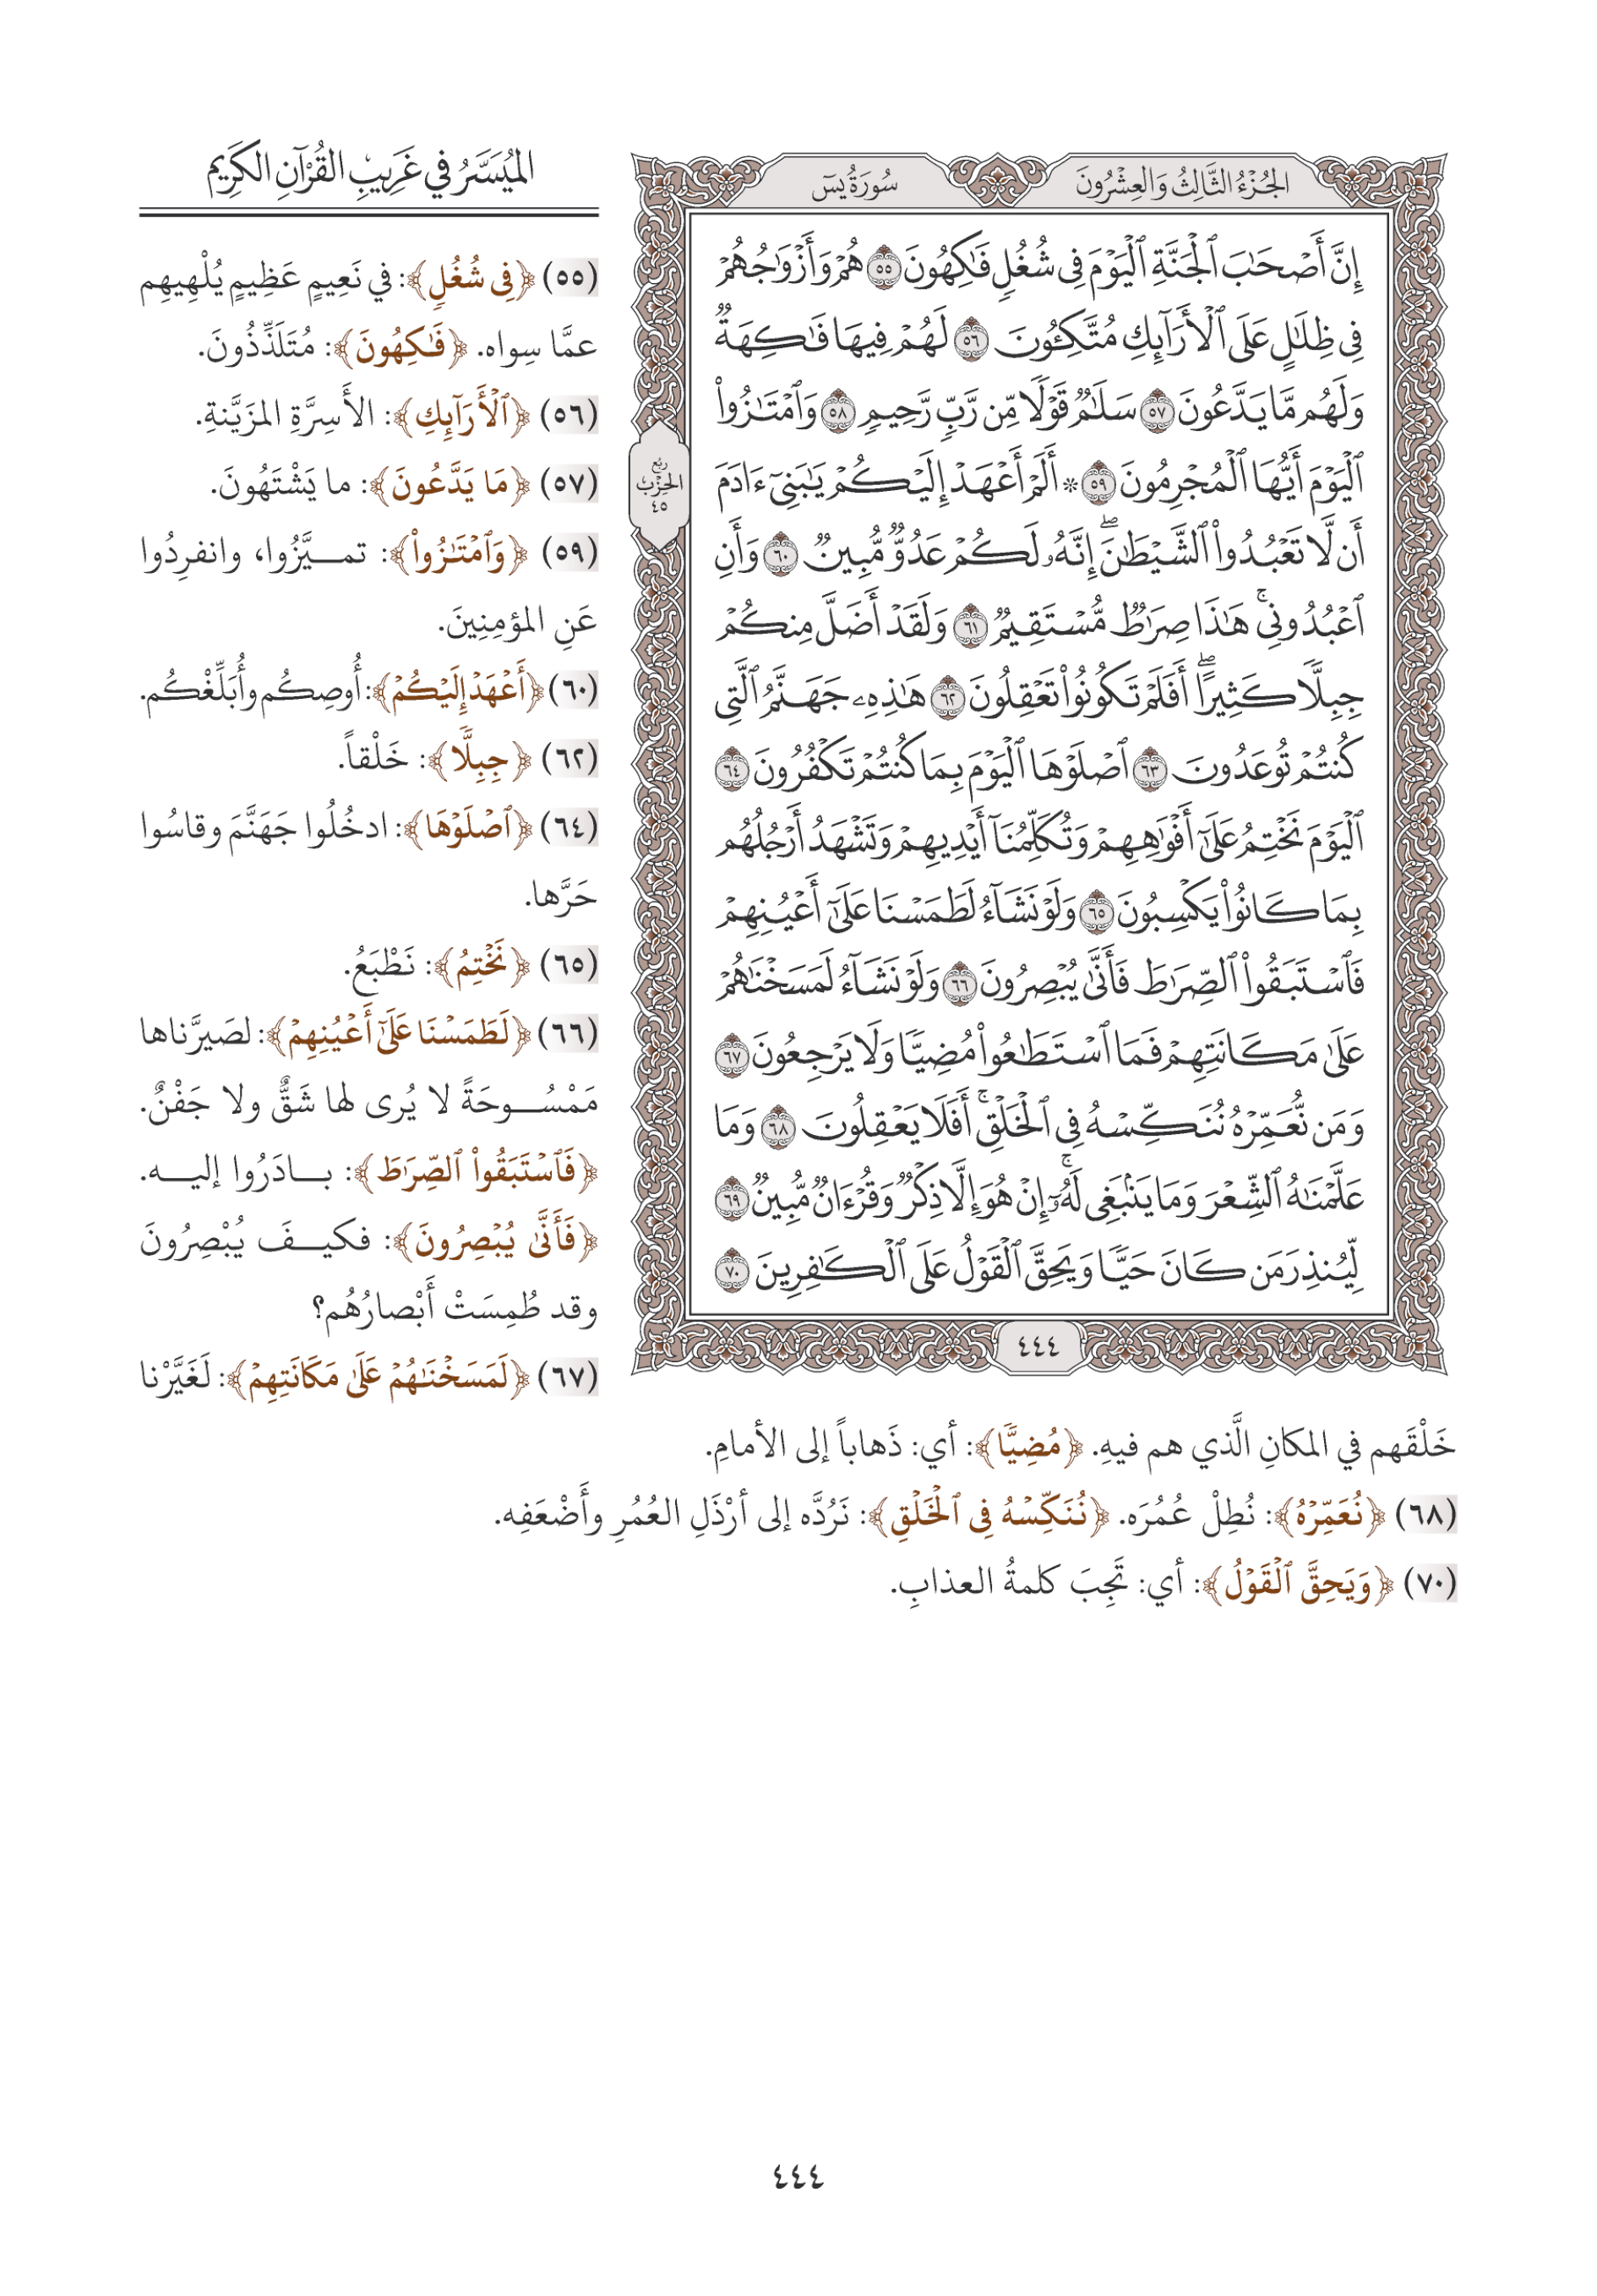 الجُزْءُ الثَّالِثُ وَالعِشْرُونَ
سُورَةُ يسٓ
إِنَّ أَصْحَٰبَ ٱلْجَنَّةِ ٱلْيَوْمَ فِى شُغُلٍ فَٰكِهُونَ ٥٥ هُمْ وَأَزْوَٰجُهُمْ
فِى ظِلَٰلٍ عَلَى ٱلْأَرَآئِكِ مُتَّكِـُٔونَ ٥٦ لَهُمْ فِيهَا فَٰكِهَةٌ
وَلَهُم مَّا يَدَّعُونَ ٥٧ سَلَٰمٌ قَوْلًا مِّن رَّبٍّ رَّحِيمٍ ٥٨ وَٱمْتَٰزُوا۟
ٱلْيَوْمَ أَيُّهَا ٱلْمُجْرِمُونَ ٥٩ ۞ أَلَمْ أَعْهَدْ إِلَيْكُمْ يَٰبَنِىٓ ءَادَمَ
أَن لَّا تَعْبُدُوا۟ ٱلشَّيْطَٰنَ ۖ إِنَّهُۥ لَكُمْ عَدُوٌّ مُّبِينٌ ٦٠ وَأَنِ
ٱعْبُدُونِى ۚ هَٰذَا صِرَٰطٌ مُّسْتَقِيمٌ ٦١ وَلَقَدْ أَضَلَّ مِنكُمْ
جِبِلًّا كَثِيرًا ۖ أَفَلَمْ تَكُونُوا۟ تَعْقِلُونَ ٦٢ هَٰذِهِۦ جَهَنَّمُ ٱلَّتِى
كُنتُمْ تُوعَدُونَ ٦٣ ٱصْلَوْهَا ٱلْيَوْمَ بِمَا كُنتُمْ تَكْفُرُونَ ٦٤
ٱلْيَوْمَ نَخْتِمُ عَلَىٰٓ أَفْوَٰهِهِمْ وَتُكَلِّمُنَآ أَيْدِيهِمْ وَتَشْهَدُ أَرْجُلُهُم
بِمَا كَانُوا۟ يَكْسِبُونَ ٦٥ وَلَوْ نَشَآءُ لَطَمَسْنَا عَلَىٰٓ أَعْيُنِهِمْ
فَٱسْتَبَقُوا۟ ٱلصِّرَٰطَ فَأَنَّىٰ يُبْصِرُونَ ٦٦ وَلَوْ نَشَآءُ لَمَسَخْنَٰهُمْ
عَلَىٰ مَكَانَتِهِمْ فَمَا ٱسْتَطَٰعُوا۟ مُضِيًّا وَلَا يَرْجِعُونَ ٦٧
وَمَن نُّعَمِّرْهُ نُنَكِّسْهُ فِى ٱلْخَلْقِ ۚ أَفَلَا يَعْقِلُونَ ٦٨ وَمَا
عَلَّمْنَٰهُ ٱلشِّعْرَ وَمَا يَنۢبَغِى لَهُۥٓ ۚ إِنْ هُوَ إِلَّا ذِكْرٌ وَقُرْءَانٌ مُّبِينٌ ٦٩
لِّيُنذِرَ مَن كَانَ حَيًّا وَيَحِقَّ ٱلْقَوْلُ عَلَى ٱلْكَٰفِرِينَ ٧٠
ربُع
الحِزْب
٤٥
٤٤٤
الميُسَّرُ في غَرِيبِ القُرْآنِ الكَرِيمِ
(٥٥) ﴿فِى شُغُلٍ﴾: في نَعِيمٍ عَظِيمٍ يُلْهِيهِم
عمَّا سِواه. ﴿فَٰكِهُونَ﴾: مُتَلَذِّذُونَ.
(٥٦) ﴿ٱلْأَرَآئِكِ﴾: الأَسِرَّةِ المزَيَّنةِ.
(٥٧) ﴿مَا يَدَّعُونَ﴾: ما يَشْتَهُونَ.
(٥٩) ﴿وَٱمْتَٰزُوا۟﴾: تميَّزُوا، وانفرِدُوا
عَنِ المؤمِنِينَ.
(٦٠) ﴿أَعْهَدْ إِلَيْكُمْ﴾: أُوصِكُم وأُبَلِّغْكُم.
(٦٢) ﴿جِبِلًّا﴾: خَلْقاً.
(٦٤) ﴿ٱصْلَوْهَا﴾: ادخُلُوا جَهَنَّمَ وقاسُوا
حَرَّها.
(٦٥) ﴿نَخْتِمُ﴾: نَطْبَعُ.
(٦٦) ﴿لَطَمَسْنَا عَلَىٰٓ أَعْيُنِهِمْ﴾: لصَيرَّناها
مَمْسُوحَةً لا يُرى لها شَقٌّ ولا جَفْنٌ.
﴿فَٱسْتَبَقُوا۟ ٱلصِّرَٰطَ﴾: بادَرُوا إليه.
﴿فَأَنَّىٰ يُبْصِرُونَ﴾: فكيفَ يُبْصِرُونَ
وقد طُمِسَتْ أَبْصارُهُم؟
(٦٧) ﴿لَمَسَخْنَٰهُمْ عَلَىٰ مَكَانَتِهِمْ﴾: لَغَيَّرْنا
خَلْقَهم في المكانِ الَّذي هم فيهِ. ﴿مُضِيًّا﴾: أي: ذَهاباً إلى الأمامِ.
(٦٨) ﴿نُعَمِّرْهُ﴾: نُطِلْ عُمُرَه. ﴿نُنَكِّسْهُ فِى ٱلْخَلْقِ﴾: نَرُدَّه إلى أرْذَلِ العُمُرِ وأَضْعَفِه.
(٧٠) ﴿وَيَحِقَّ ٱلْقَوْلُ﴾: أي: تَجِبَ كلمةُ العذابِ.
٤٤٤